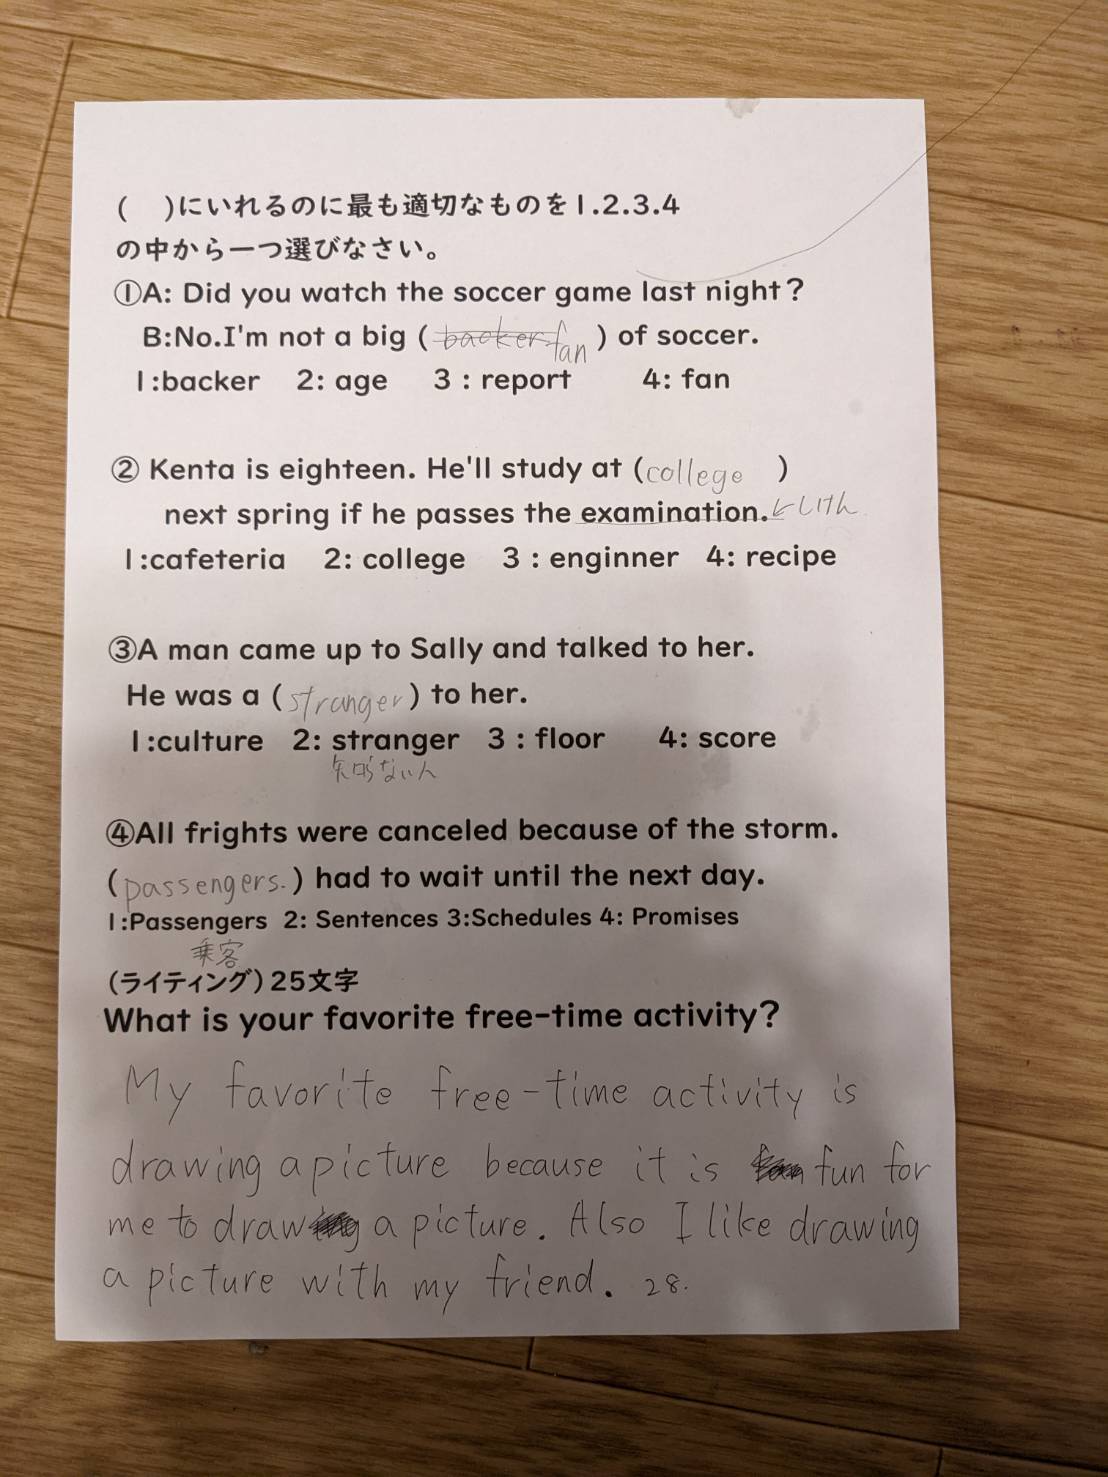 (　)にいれるのに最も適切なものを1.2.3.4
の中から一つ選びなさい。
①A: Did you watch the soccer game last night?
B:No.I'm not a big ( backer fan ) of soccer.
1:backer 2: age 3 : report 4: fan
② Kenta is eighteen. He'll study at (college )
next spring if he passes the examination.←しけん
1:cafeteria 2: college 3 : enginner 4: recipe
③A man came up to Sally and talked to her.
He was a (stranger) to her.
1:culture 2: stranger 3 : floor 4: score
知らない人
④All frights were canceled because of the storm.
(passengers.) had to wait until the next day.
1:Passengers 2: Sentences 3:Schedules 4: Promises
乗客
(ライティング)25文字
What is your favorite free-time activity?
My favorite free-time activity is
drawing a picture because it is fun for
me to draw a picture. Also I like drawing
a picture with my friend. 28.